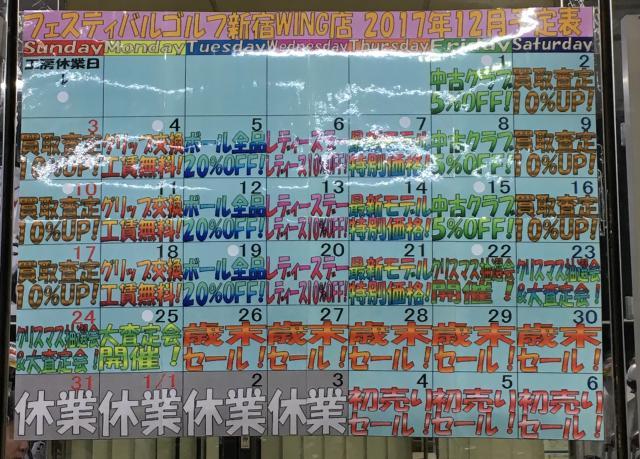 フェスティバルゴルフ新宿WING店 2017年12月予定表
Sunday Monday Tuesday Wednesday Thursday Friday Saturday
工房休業日
↓
1 2
中古クラブ 買取査定
5%OFF! 10%UP!
3 4 5 6 7 8 9
買取査定 グリップ交換 ボール全品 レディースデー 最新モデル 中古クラブ 買取査定
10%UP! 工賃無料! 20%OFF! レディース10%OFF! 特別価格! 5%OFF! 10%UP!
10 11 12 13 14 15 16
買取査定 グリップ交換 ボール全品 レディースデー 最新モデル 中古クラブ 買取査定
10%UP! 工賃無料! 20%OFF! レディース10%OFF! 特別価格! 5%OFF! 10%UP!
17 18 19 20 21 22 23
買取査定 グリップ交換 ボール全品 レディースデー 最新モデル クリスマス抽選会 クリスマス抽選会
10%UP! 工賃無料! 20%OFF! レディース10%OFF! 特別価格! 開催! &大査定会!
24 25 26 27 28 29 30
クリスマス抽選会 大査定会 歳末 歳末 歳末 歳末 歳末
&大査定会! 開催! セール! セール! セール! セール! セール!
31 1/1 2 3 4 5 6
休業 休業 休業 休業 初売り 初売り 初売り
セール! セール! セール!